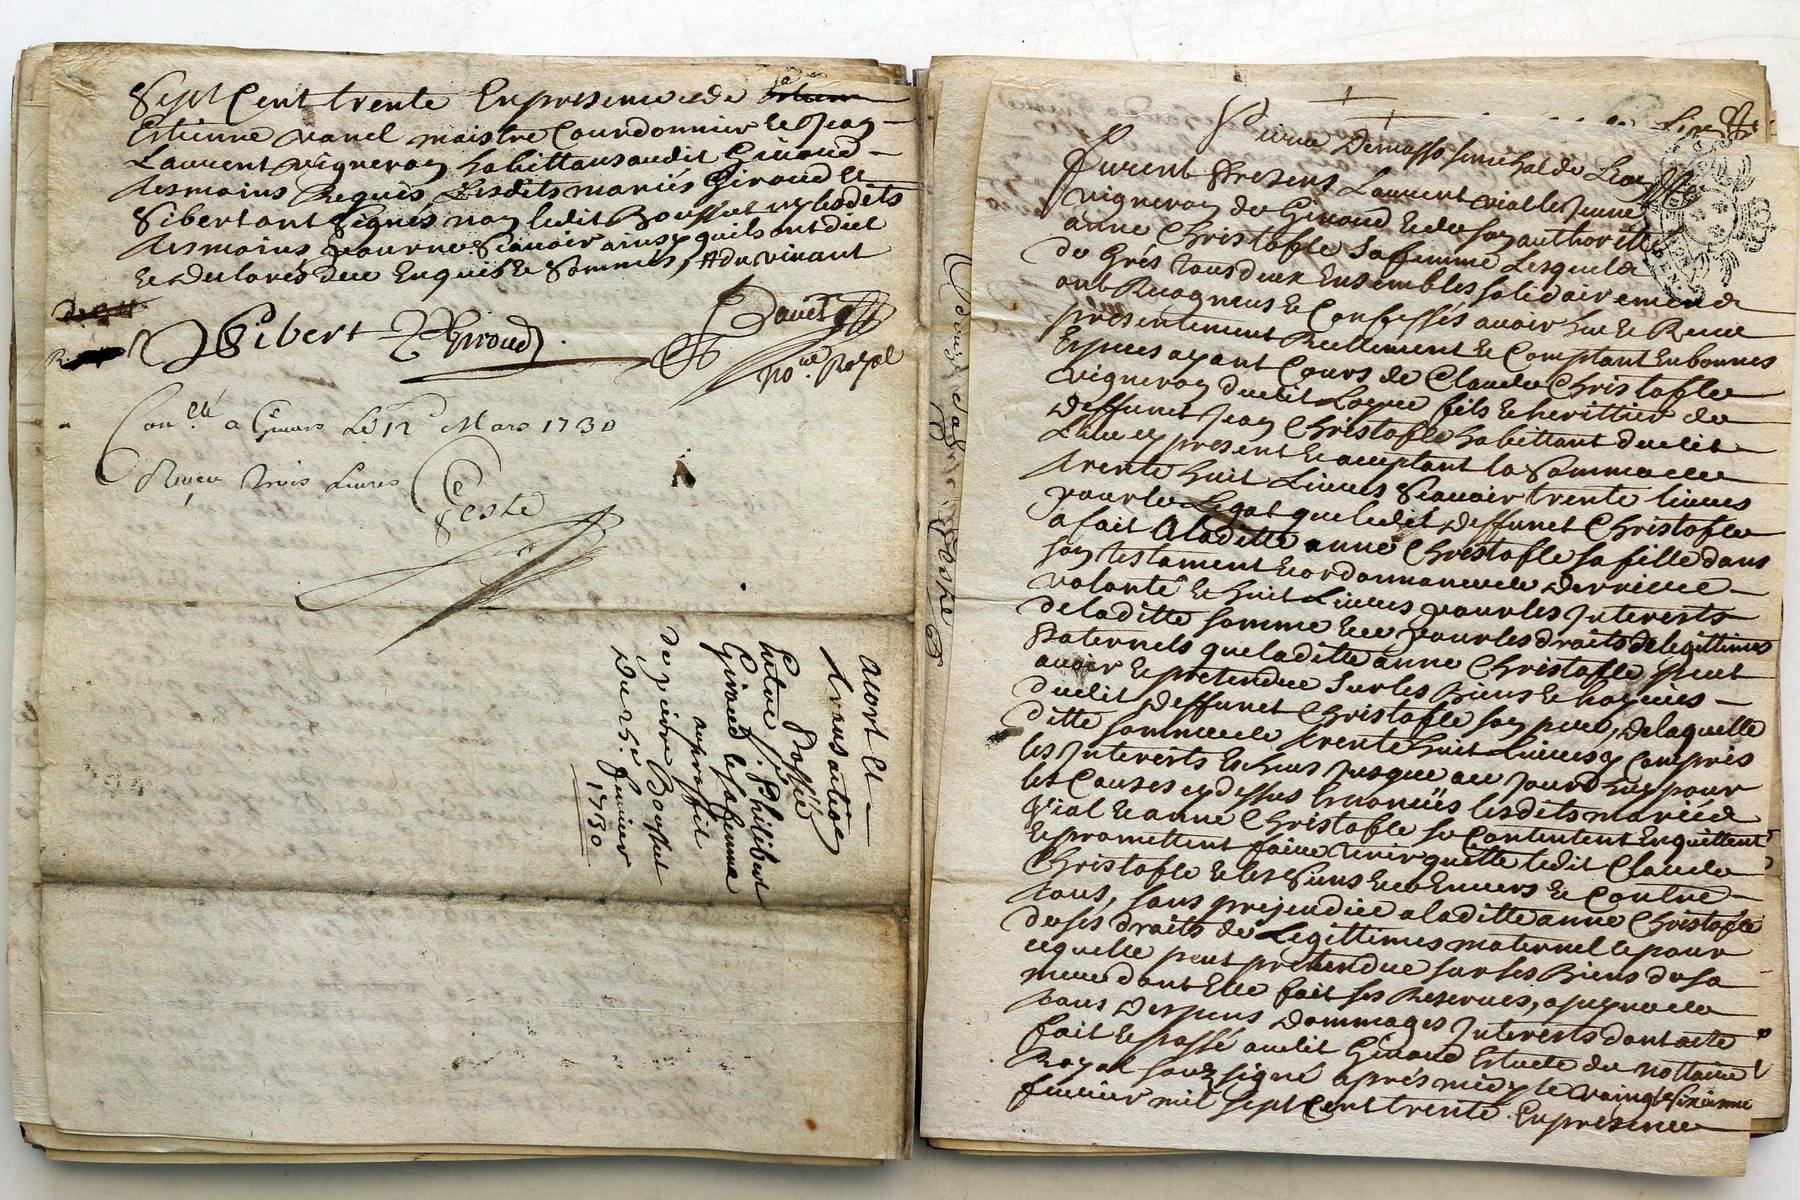 Sept Cent trente En presence de
Estienne vanel maistre Courdonnier et Jean
Laurent vigneron habittans audit Givord
tesmoins Requis Lesdits mariés Giroud et
Sibert ont Signés non ledit Bousset ny lesdits
tesmoins pour ne Scavoir ainsy quils ont dict
et declares deu Enquis et Sommés,
Sibert P Giroud
no.re Royal
Con.llé a Givors Le 12 Mars 1730
Receu trois Livres
Ceste
accort et
transaction
Passée
Entre S.r Philibert
Giroud et sa femme
au proffit
de pierre Bousset
Du 25.e fevrier
1730
Pierre Demasso senechal de Lion
furent Presens Laurent vial le Jeune
vigneron de Givord et de son authorité
anne Christofle Sa femme Lesquels
de Grés tous deux Ensembles solidairement
ont Recogneus et Confessés avoir heu et Receu
presentement Reellement et Comptant En bonnes
Especes ayant Cours de Claude Christofle
vigneron dudit fils et herittier de
deffunct Jean Christofle habittant dudit
Lieu cy present et acceptant la Somme de
trente huit Livres Scavoir trente livres
pour le Legat que ledit deffunct Christofle
a fait A laditte anne Christofle sa fille dans
son testament et ordonnance de derniere
volonté et huit Livres pour les Interests
de laditte somme et ce pour les droits de legittimes
Paternels que laditte anne Christofle peut
avoir et pretendre Sur les Biens et hoyries
dudit deffunct Christofle son pere, de laquelle
ditte somme de trente huit Livres y compris
les Interests Echus Jusque au Jourdhuy pour
les Causes cy dessus Enoncées lesdits mariés
Vial et anne Christofle se Contentent En quittent
et promettent faire tenir quitte ledit Claude
Christofle et les Siens Envers et Contre
tous, sans prejudice a laditte anne Christofle
de ses droits de Legittimes maternel et pour
cequelle peut pretendre sur les Biens de sa
mere dont Elle fait ses Reserves, a peyne de
tous Despens Dommages Interests dont acte
fait et passé audit Givord Estude du nottaire
Royal soubsigné aprés midy le vaingt sixieme
fevrier mil sept Cent trente En presence